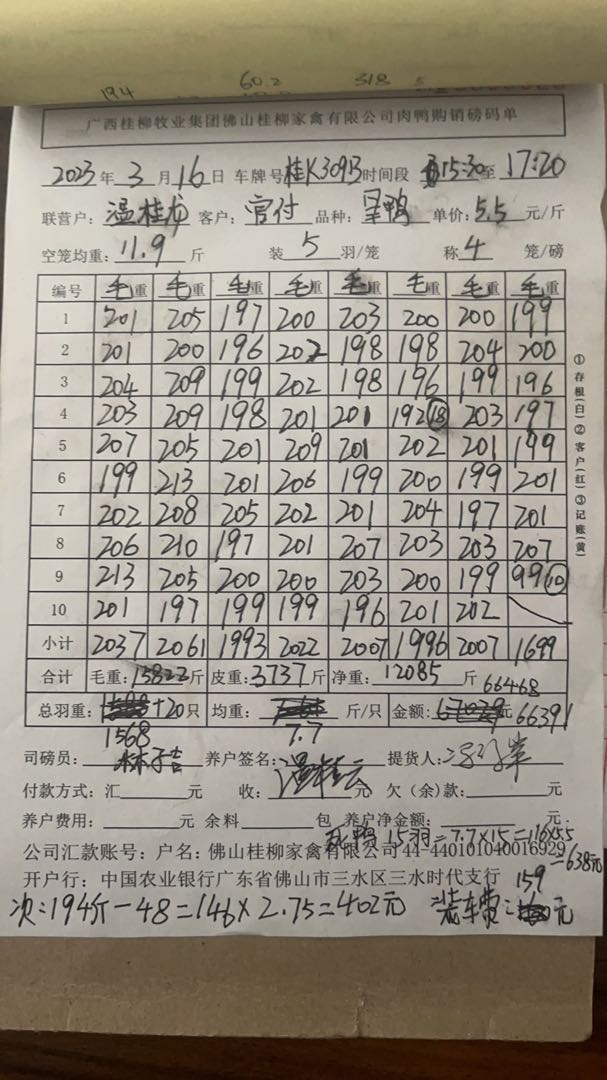 194 60.2 318
广西桂柳牧业集团佛山桂柳家禽有限公司肉鸭购销磅码单
2023年3月16日 车牌号桂K309B时间段 15:30至17:20
联营户:温桂龙 客户:官付 品种:呈鸭 单价:5.5元/斤
空笼均重:11.9斤 装5羽/笼 称4笼/磅
编号 毛重 毛重 毛重 毛重 毛重 毛重 毛重 毛重
1 201 205 197 200 203 200 200 199
2 201 200 196 202 198 198 204 200
3 204 209 199 202 198 196 199 196
4 203 209 198 201 201 192⑱ 203 197
5 207 205 201 209 201 202 201 199
6 199 213 201 206 199 200 199 201
7 202 208 205 202 201 204 197 201
8 206 210 197 201 207 203 203 207
9 213 205 200 200 203 200 199 99⑩
10 201 197 199 199 196 201 202
小计 2037 2061 1993 2022 2007 1996 2007 1699
合计 毛重:15822斤 皮重:3737斤 净重:12085斤 66468
总羽重: +20只 均重: 斤/只 金额: 元 66391
1568 7.7
司磅员: 林子吉 养户签名: 提货人:
付款方式:汇 元 收: 元 欠(余)款: 元
养户费用: 元 余料 包 养户净金额: 元
死鸭 15羽=7.7×15=116×5.5
公司汇款账号:户名:佛山桂柳家禽有限公司44-440101040016929
=638元
开户行:中国农业银行广东省佛山市三水区三水时代支行
159
次:194斤-48=146×2.75=402元 装车费: 元
①存根(白)②客户(红)③记账(黄)